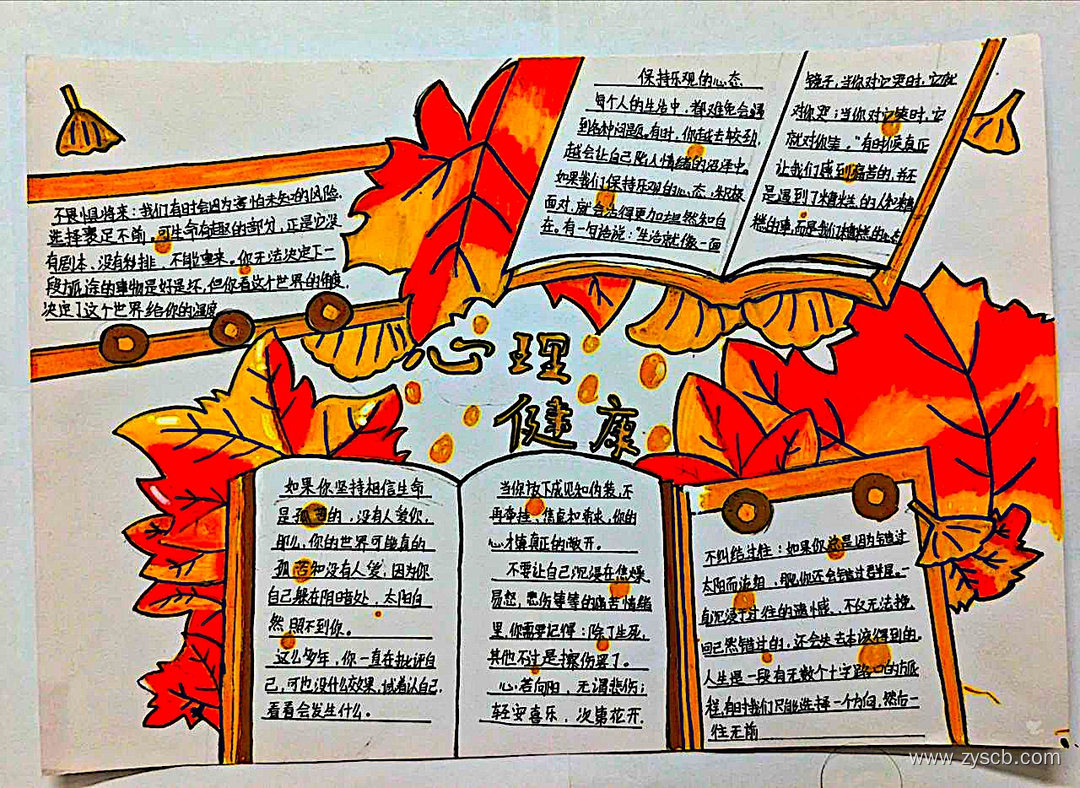 保持乐观的心态
每个人的生活中，都难免会遇
到各种问题。有时，你越去较劲，
越会让自己陷入情绪的沼泽中。
如果我们保持乐观的心态，积极
面对，就会活得更加坦然和自
在。有一句话说："生活就像一面
镜子，当你对它哭时，它就
对你哭；当你对它笑时，它
就对你笑。"有时候真正
让我们感到痛苦的，并不
是遇到了糟糕的人和糟
糕的事，而是我们糟糕的心态
不畏惧将来：我们有时会因为害怕未知的风险，
选择裹足不前，可生命有趣的部分，正是它没
有剧本、没有彩排、不能重来。你无法决定下一
段旅途的事物是好是坏，但你看这个世界的角度，
决定了这个世界给你的温度
心理
健康
如果你坚持相信生命
是孤独的，没有人爱你，
那么，你的世界可能真的
孤苦和没有人爱，因为你
自己躲在阴暗处，太阳自
然照不到你。
这么多年，你一直在批评自
己，可也没什么效果，试着认自己，
看看会发生什么。
当你放下成见和伪装，不
再牵挂、焦虑和索求，你的
心才算真正的敞开。
不要让自己沉浸在焦躁
易怒，悲伤等等的痛苦情绪
里，你需要记得：除了生死，
其他不过是擦伤罢了。
心若向阳，无谓悲伤；
轻安喜乐，次第花开
不纠结过往：如果你总是因为错过
太阳而流泪，那你还会错过群星。一
直沉浸于过往的遗憾，不仅无法挽
回已然错过的，还会失去本该得到的。
人生是一段有无数个十字路口的旅
程，有时我们只能选择一个方向，然后一
往无前
www.zyscb.com